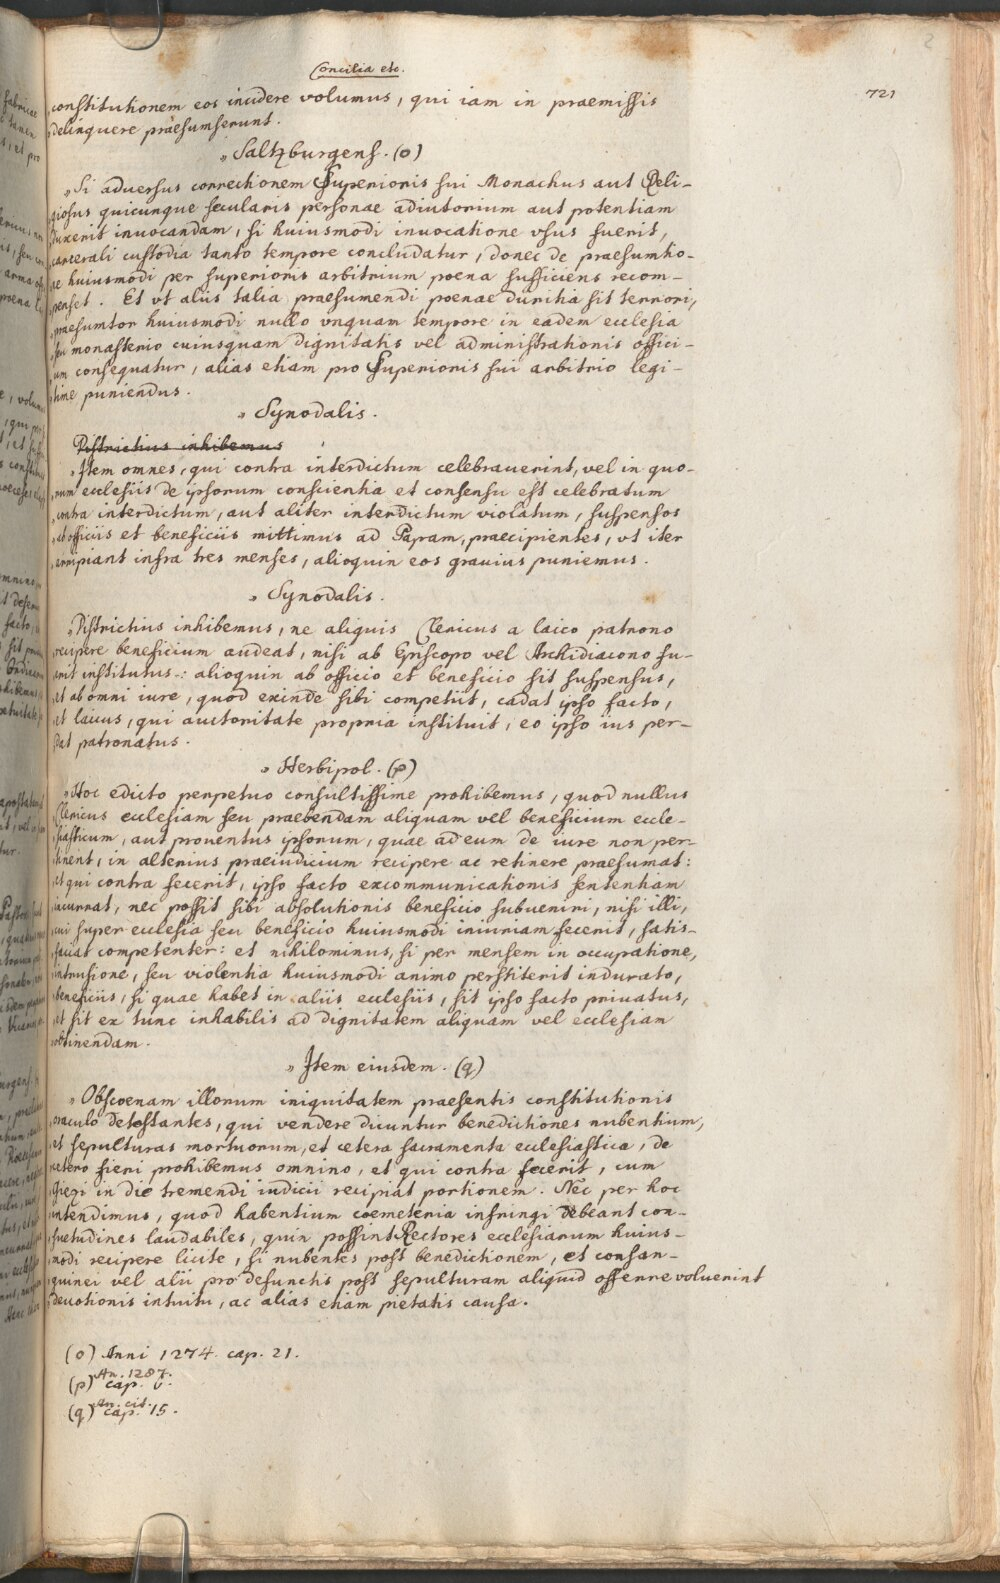 Concilia etc.
721
„constitutionem eos incidere volumus, qui iam in praemissis
„delinquere praesumserunt.
„Saltzburgens. (o)
„Si aduersus correctionem Superioris sui Monachus aut Reli-
„giosus quicunque secularis personae adiutorium aut potentiam
„duxerit inuocandam, si huiusmodi inuocatione vsus fuerit,
„carcerali custodia tanto tempore concludatur, donec de praesumtio-
„ne huiusmodi per superioris arbitrium poena sufficiens recom-
„penset. Et vt aliis talia praesumendi poenae duritia sit terrori,
„praesumtor huiusmodi nullo vnquam tempore in eadem ecclesia
„seu monasterio cuiusquam dignitatis vel administrationis offici-
„um consequatur, alias etiam pro Superioris sui arbitrio legi-
„time puniendus.
„Synodalis.
Districtius inhibemus
„Item omnes, qui contra interdictum celebrauerint, vel in quo-
„rum ecclesiis de ipsorum conscientia et consensu est celebratum
„contra interdictum, aut aliter interdictum violatum, suspensos
„ab officiis et beneficiis mittimus ad Papam, praecipientes, vt iter
„arripiant infra tres menses, alioquin eos grauius puniemus.
„Synodalis.
„Districtius inhibemus, ne aliquis Clericus a laico patrono
„recipere beneficium audeat, nisi ab Episcopo vel Archidiacono fu-
„erit institutus: alioquin ab officio et beneficio sit suspensus,
„et ab omni iure, quod exinde sibi competiit, cadat ipso facto,
„et laicus, qui auctoritate propria instituit, eo ipso ius per-
„dat patronatus.
„Herbipol. (p)
„Hoc edicto perpetuo consultissime prohibemus, quod nullus
„Clericus ecclesiam seu praebendam aliquam vel beneficium eccle-
„siasticum, aut prouentus ipsorum, quae ad eum de iure non per-
„tinent, in alterius praeiudicium recipere ac retinere praesumat:
„et qui contra fecerit, ipso facto excommunicationis sententiam
„incurrat, nec possit sibi absolutionis beneficio subueniri, nisi illi,
„cui super ecclesia seu beneficio huiusmodi iniuriam fecerit, satis-
„faciat competenter: et nihilominus, si per mensem in occupatione,
„intrusione, seu violentia huiusmodi animo perstiterit indurato,
„beneficiis, si quae habet in aliis ecclesiis, sit ipso facto priuatus,
„et sit ex tunc inhabilis ad dignitatem aliquam vel ecclesiam
„obtinendam.
„Item eiusdem. (q)
„Obscoenam illorum iniquitatem praesentis constitutionis
„oraculo detestantes, qui vendere dicuntur benedictiones nubentium,
„et sepulturas mortuorum, et cetera sacramenta ecclesiastica, de
„cetero fieri prohibemus omnino, et qui contra fecerit, cum
„Giezi in die tremendi iudicii recipiat portionem. Nec per hoc
„intendimus, quod habentium coemeteria infringi debeant con-
„suetudines laudabiles, quin possint Rectores ecclesiarum huius-
„modi recipere licite, si nubentes post benedictionem, et consan-
„guinei vel alii pro defunctis post sepulturam aliquid offerre voluerint
„deuotionis intuitu, ac alias etiam pietatis causa.
(o) Anni 1274. cap. 21.
An. 1287.
(p) cap.
An. cit.
(q) cap. 15.